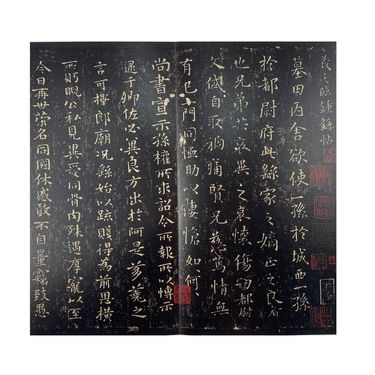 羲之臨鍾繇帖
墓田丙舍欲使一孫於城西一孫
於都尉府此繇家之嫡正之良者
也兄弟共哀異之哀懷傷切都尉
文岱自取禍痛賢兄慈篤情無
有已一門同恤助以悽愴如何
尚書宣示孫權所求詔令所報所以博示
逮于卿佐必冀良方出於阿是芻蕘之
言可擇郎廟況繇始以疏賤得為前恩橫
所盼睨公私見異愛同骨肉殊遇厚寵以至
今日再世榮名同國休慼敢不自量竊致愚